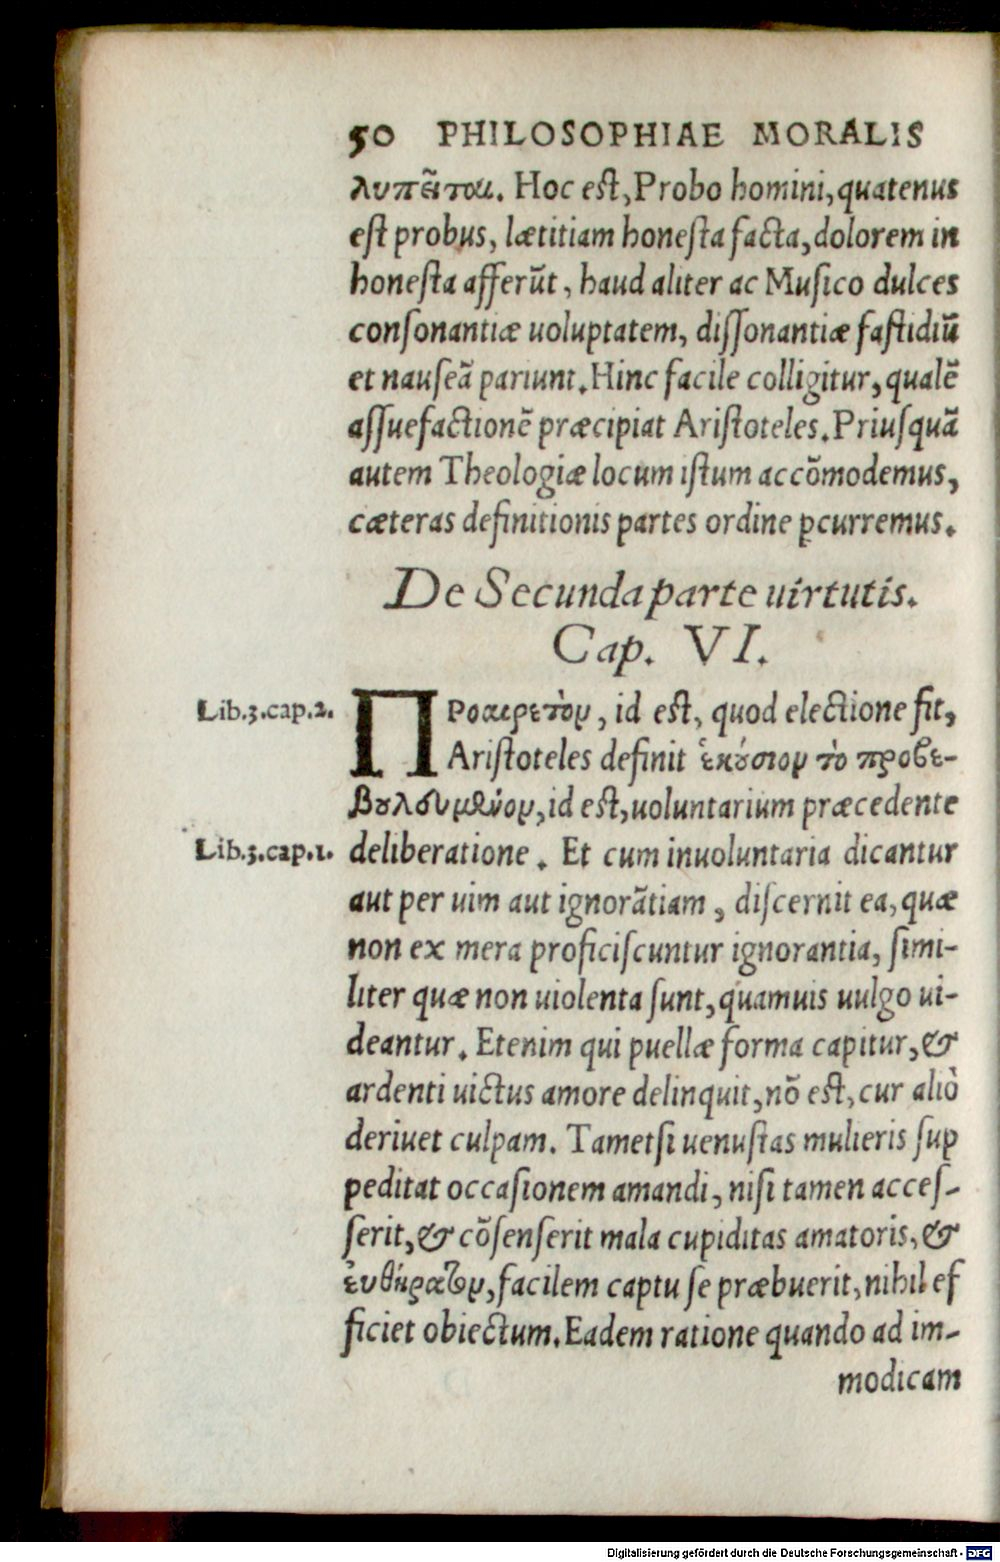 50 PHILOSOPHIAE MORALIS
λυπεῖται. Hoc est, Probo homini, quatenus
est probus, lætitiam honesta facta, dolorem in
honesta afferūt, haud aliter ac Musico dulces
consonantiæ uoluptatem, dissonantiæ fastidiū
et nauseā pariunt. Hinc facile colligitur, qualē
assuefactionē præcipiat Aristoteles. Priusquā
autem Theologiæ locum istum accōmodemus,
cæteras definitionis partes ordine ꝑcurremus.
De Secunda parte uirtutis.
Cap. VI.
Lib.3.cap.2.
ΠΡοαιρετὸν, id est, quod electione fit,
Aristoteles definit ἑκούσιον τὸ προβε-
βουλευμένον, id est, uoluntarium præcedente
Lib.3.cap.1.
deliberatione. Et cum inuoluntaria dicantur
aut per uim aut ignorātiam, discernit ea, quæ
non ex mera proficiscuntur ignorantia, simi-
liter quæ non uiolenta sunt, quamuis uulgo ui-
deantur. Etenim qui puellæ forma capitur, &
ardenti uictus amore delinquit, nō est, cur aliò
deriuet culpam. Tametsi uenustas mulieris sup
peditat occasionem amandi, nisi tamen acces-
serit, & cōsenserit mala cupiditas amatoris, &
ἐυθήρατον, facilem captu se præbuerit, nihil ef
ficiet obiectum. Eadem ratione quando ad im-
modicam
Digitalisierung gefördert durch die Deutsche Forschungsgemeinschaft - DFG